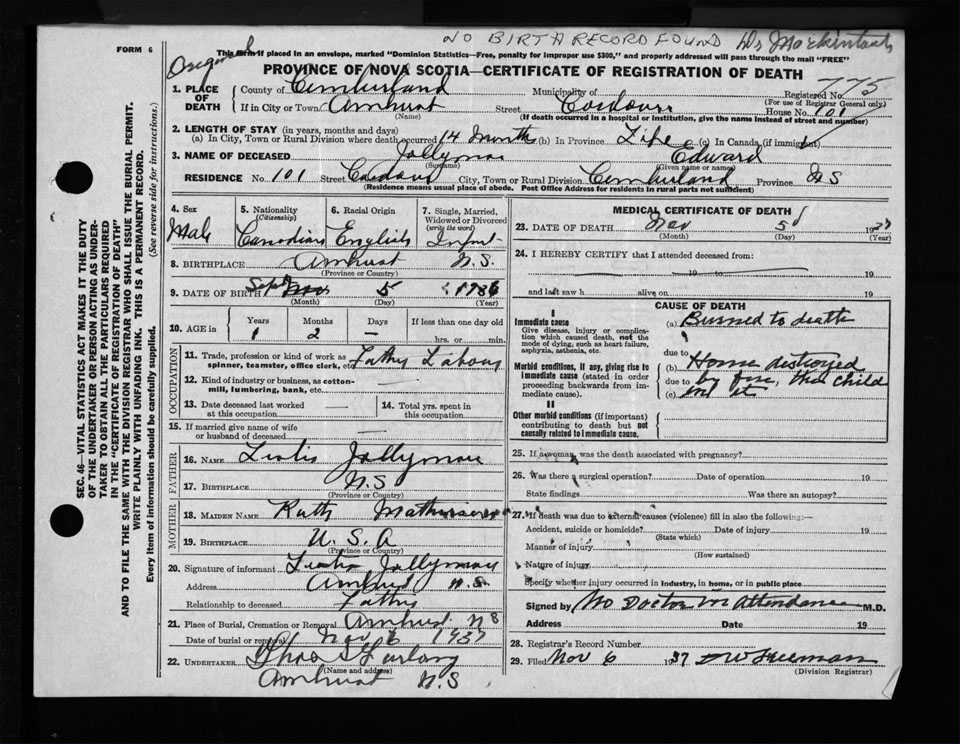 NO BIRTH RECORD FOUND
FORM 6
This form if placed in an envelope, marked "Dominion Statistics—Free, penalty for improper use $300," and properly addressed will pass through the mail "FREE"
PROVINCE OF NOVA SCOTIA—CERTIFICATE OF REGISTRATION OF DEATH
775
1. PLACE OF DEATH
County of Cumberland Municipality of Registered No.
(For use of Registrar General only)
If in City or Town Amherst Street House No. 101
(Name) (If death occurred in a hospital or institution, give the name instead of street and number)
2. LENGTH OF STAY (in years, months and days)
(a) In City, Town or Rural Division where death occurred 14 Months (b) In Province Life (c) In Canada (if immigrant)
3. NAME OF DECEASED Jollymore Edward
(Surname) (Given name or names)
RESIDENCE No. 101 Street City, Town or Rural Division Cumberland Province N S
(Residence means usual place of abode. Post Office Address for residents in rural parts not sufficient)
4. Sex
Male
5. Nationality
(Citizenship)
Canadian
6. Racial Origin
English
7. Single, Married, Widowed or Divorced
(write the word)
Infant
8. BIRTHPLACE Amherst N.S.
(Province or Country)
9. DATE OF BIRTH Sept 5 1936
(Month) (Day) (Year)
10. AGE in
Years Months Days If less than one day old
1 2 — hrs. or min.
OCCUPATION
11. Trade, profession or kind of work as spinner, teamster, office clerk, etc.
12. Kind of industry or business, as cotton-mill, lumbering, bank, etc.
13. Date deceased last worked at this occupation
14. Total yrs. spent in this occupation
15. If married give name of wife or husband of deceased
FATHER
16. NAME Jollymore
17. BIRTHPLACE N.S
(Province or Country)
MOTHER
18. MAIDEN NAME Ruth
19. BIRTHPLACE U.S.A
(Province or Country)
20. Signature of informant Jollymore
Address Amherst N.S.
Relationship to deceased Father
21. Place of Burial, Cremation or Removal Amherst N S
Date of burial or removal Nov 6 1937
22. UNDERTAKER
(Name and address)
Amherst N.S
MEDICAL CERTIFICATE OF DEATH
23. DATE OF DEATH Nov 5 1937
(Month) (Day) (Year)
24. I HEREBY CERTIFY that I attended deceased from:
19 to 19
and last saw h alive on 19
CAUSE OF DEATH
I
Immediate cause
Give disease, injury or complication which caused death, not the mode of dying, such as heart failure, asphyxia, asthenia, etc.
(a) Burned to death
due to
Morbid conditions, if any, giving rise to immediate cause (stated in order proceeding backwards from immediate cause).
(b) Home destroyed
due to by fire, this child
(c) in it
II
Other morbid conditions (if important) contributing to death but not causally related to immediate cause.
25. If a woman, was the death associated with pregnancy?
26. Was there a surgical operation? Date of operation 19
State findings Was there an autopsy?
27. If death was due to external causes (violence) fill in also the following:—
Accident, suicide or homicide? Date of injury 19
(State which)
Manner of injury
(How sustained)
Nature of injury
Specify whether injury occurred in industry, in home, or in public place
Signed by No Doctor in attendance M.D.
Address Date 19
28. Registrar's Record Number
29. Filed Nov 6 1937 Freeman
(Division Registrar)
SEC. 46—VITAL STATISTICS ACT MAKES IT THE DUTY
OF THE UNDERTAKER OR PERSON ACTING AS UNDER-
TAKER TO OBTAIN ALL THE PARTICULARS REQUIRED
IN THE "CERTIFICATE OF REGISTRATION OF DEATH"
AND TO FILE THE SAME WITH THE DIVISION REGISTRAR WHO SHALL ISSUE THE BURIAL PERMIT.
WRITE PLAINLY WITH UNFADING INK. THIS IS A PERMANENT RECORD.
Every item of information should be carefully supplied. (See reverse side for instructions.)